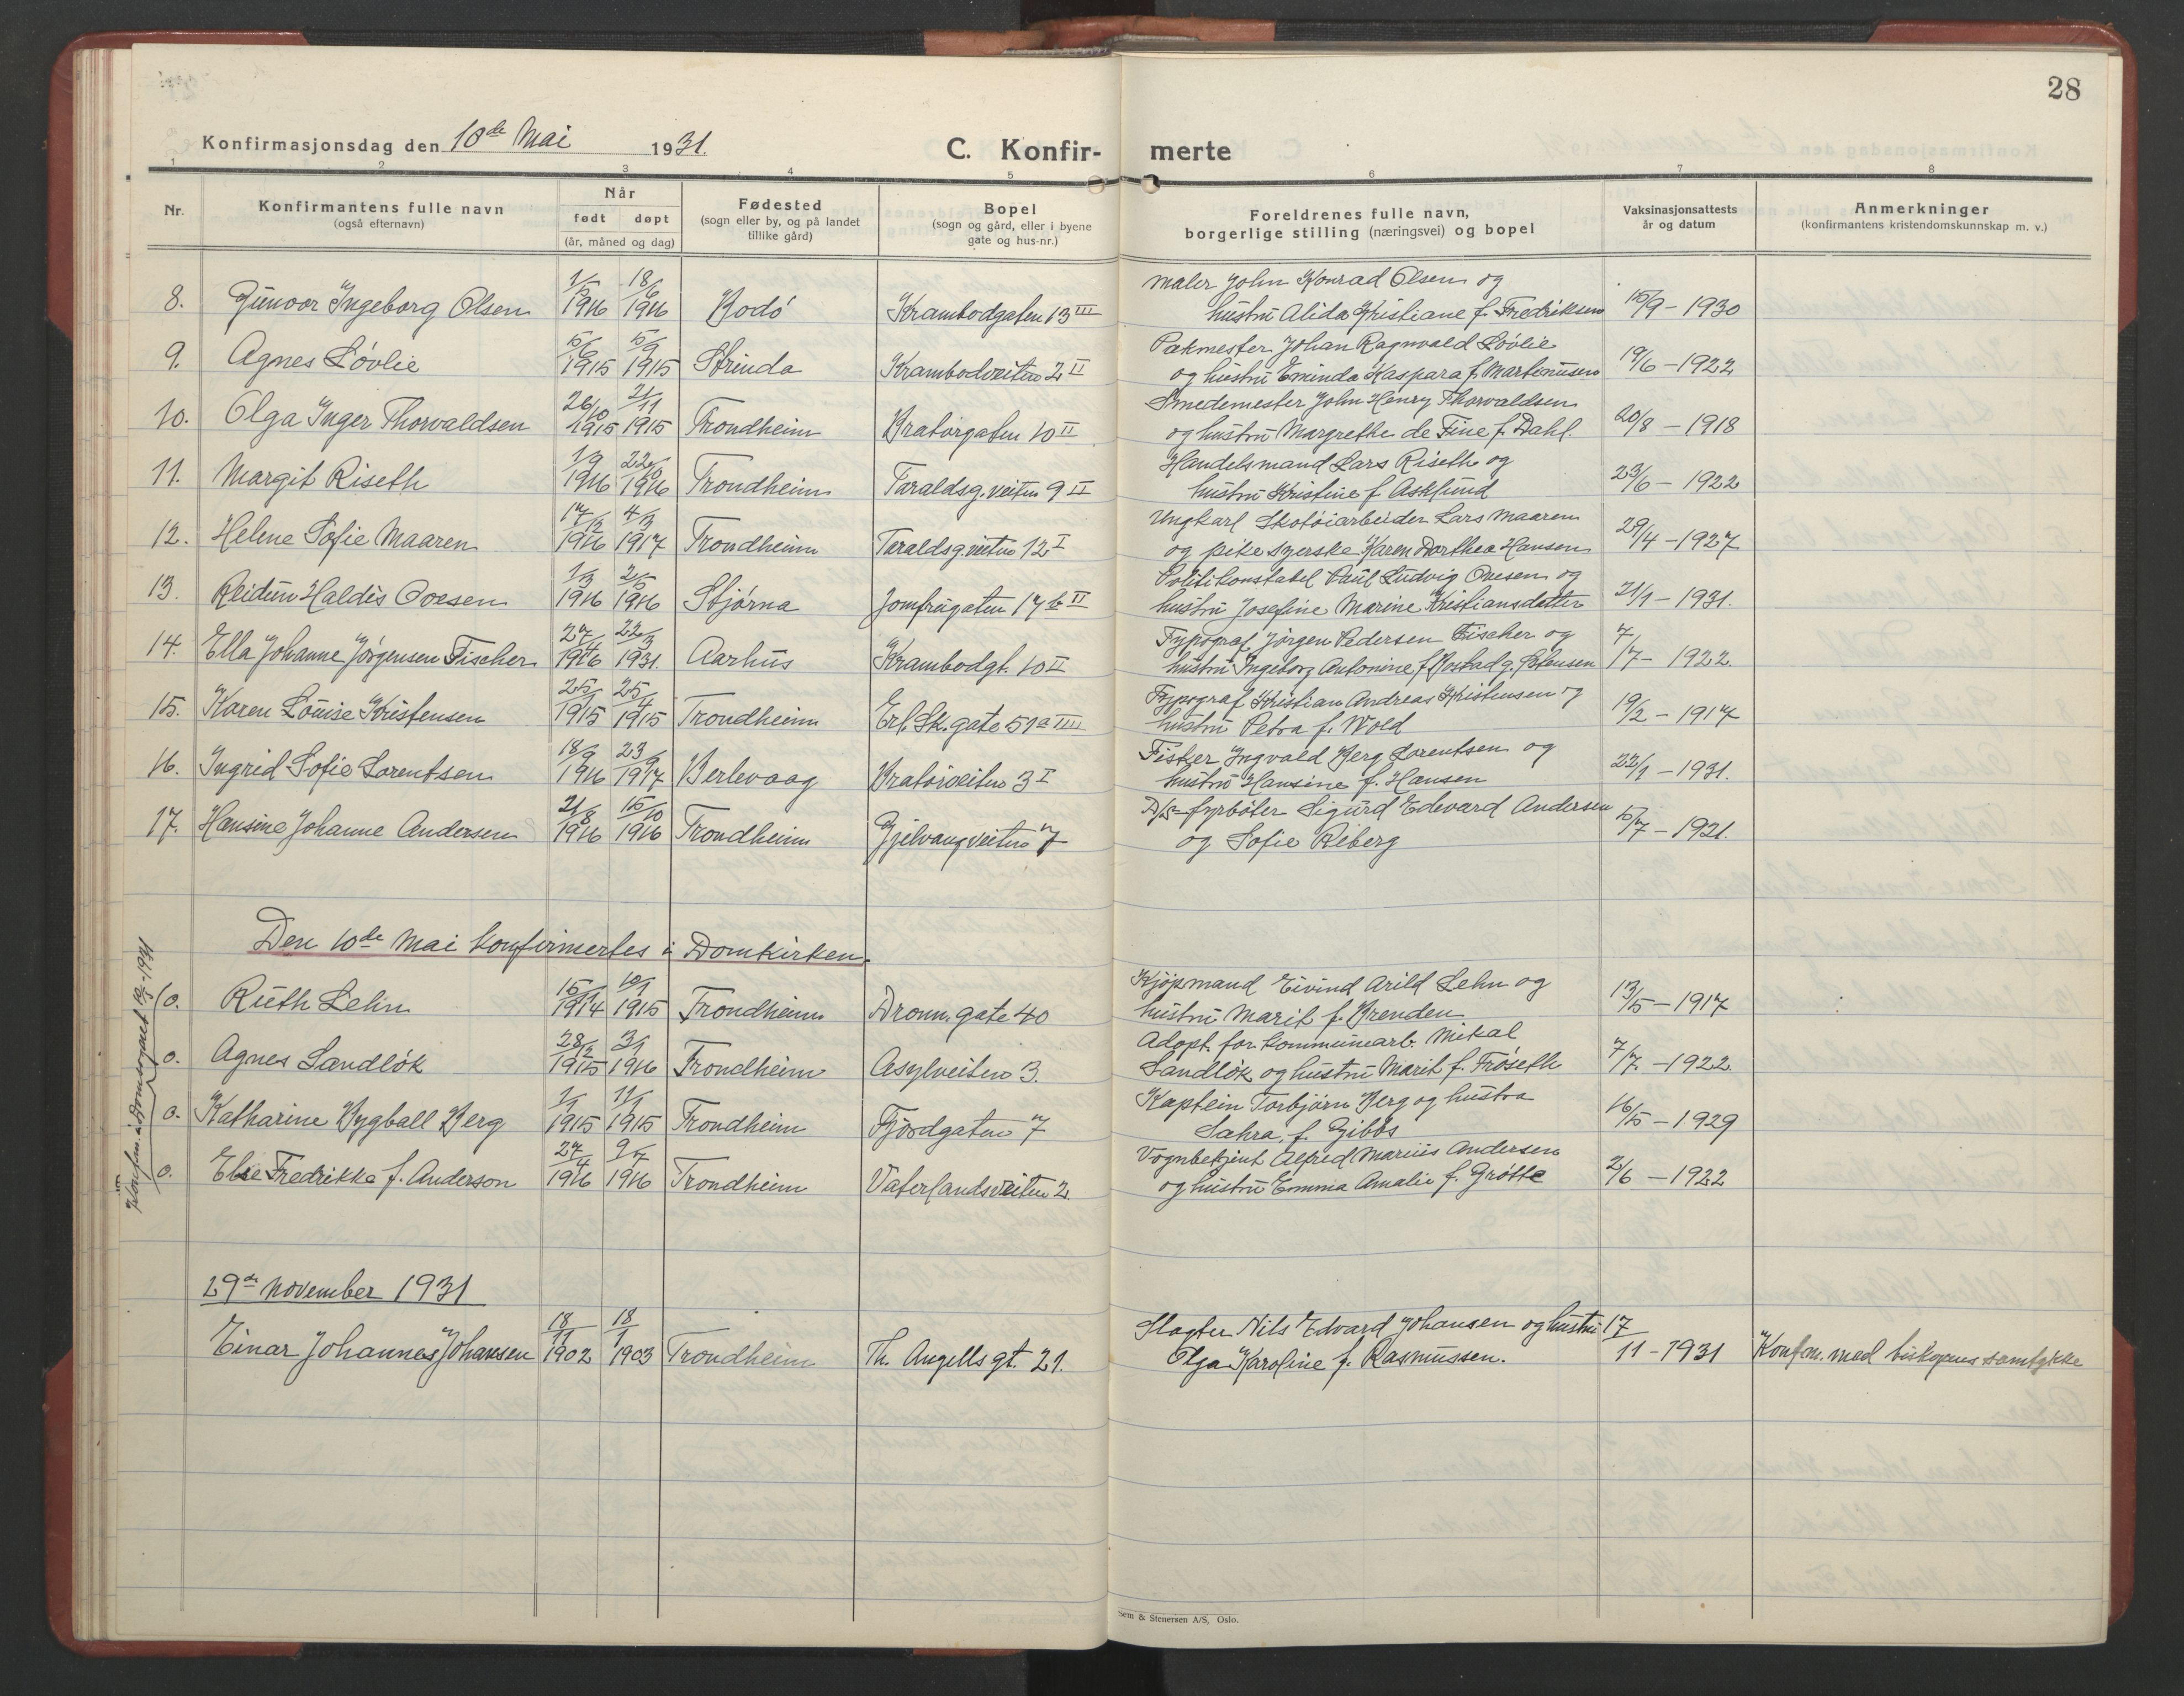 28
Konfirmasjonsdag den 10de Mai 1931.
C. Konfir- merte
1 2 3 4 5 6 7 8
Nr.
Konfirmantens fulle navn
(også efternavn)
Når
født døpt
(år, måned og dag)
Fødested
(sogn eller by, og på landet
tillike gård)
Bopel
(sogn og gård, eller i byene
gate og hus-nr.)
Foreldrenes fulle navn,
borgerlige stilling (næringsvei) og bopel
Vaksinasjonsattests
år og datum
Anmerkninger
(konfirmantens kristendomskunnskap m. v.)
8. Gunvor Ingeborg Olsen 1/5 1916 18/6 1916 Bodö Krambodgaten 13 III Maler John Konrad Olsen og
hustru Alida Kristiane f. Fredriksen 15/9 - 1930
9. Agnes Lövlie 1915 1915 Strinda Krambodveiten 2 II Pakmester Johan Ragnvald Lövlie
og hustru Eminda Kaspara f. Martenusen 19/6 - 1922
10. Olga Inger Thorvaldsen 26/10 1915 21/11 1915 Trondheim Bratörgaten 10 II Smedemester John Henry Thorvaldsen
og hustru Margrethe de Fine f. Dahl. 20/8 - 1918
11. Margit Riseth 1/9 1916 22/10 1916 Trondheim Taraldsg.veiten 9 II Handelsmand Lars Riseth og
hustru Kristine f. Asklund 23/6 - 1922
12. Helene Sofie Maaren 17/12 1916 4/3 1917 Trondheim Taraldsgveiten 12 I Ungkarl Skotöiarbeider Lars Maaren
og pike syerske Karen Dorthea Hansen 29/4 - 1927
13. Reidun Haldis Ovesen 1/3 1916 2/5 1916 Stjörna Jomfrugaten 17 b II Politikonstabel Paul Ludvig Ovesen og
hustru Josefine Marine Kristiansdatter 21/1 - 1931.
14. Ella Johanne Jörgensen Fischer 27/4 1916 22/3 1931. Aarhus Krambodgt. 10 II Typograf Jörgen Pedersen Fischer og
hustru Ingeborg Antonine f. 7/7 - 1922.
15. Karen Louise Kristensen 25/1 1915 25/4 1915 Trondheim Erl. Sk. gate 51a IIII Typograf Kristian Andreas Kristensen og
hustru Petra f. Wold 19/2 - 1917
16. Ingrid Sofie Lorentsen 18/9 1916 23/9 1917 Berlevaag Bratörveiten 3 I Fisker Ingvald Berg Lorentsen og
hustru Hansine f. Hansen 22/1 - 1931.
17. Hansine Johanne Andersen 21/8 1916 15/10 1916 Trondheim Gjelvangveiten 7 D/S-fyrböter Sigurd Edevard Andersen
og Sofie Riberg 15/7 - 1921.
Den 10de Mai konfirmertes i Domkirken.
Konfirm. i Domsognet 10/5-1931
0. Ruth Lehn 1914 10/1 1915 Trondheim Dronn. gate 40 Kjöpmand Eivind Arild Lehn og
hustru Marit f. Brenden 13/5 - 1917
0. Agnes Sandlök 28/12 1915 3/1 1916 Trondheim Asylveiten 3. Adopt. for. kommunearb. Mikal
Sandlök og hustru Marit f. Fröseth 7/7 - 1922.
0. Katharine Bygball Berg 1/1 1915 11/1 1915 Trondheim Fjordgaten 7 Kaptein Torbjörn Berg og hustru
Sahra. f. Gibbs 16/5 - 1929
0. Else Fredrikke f. Anderson 27/4 1916 9/7 1916 Trondheim Vaterlandsveiten 2. Vognbetjent Alfred Marius Andersen
og hustru Emma Amalie f. Grötte 2/6 - 1922
29de November 1931
Einar Johannes Johansen 18/11 1902 18/1 1903 Trondheim Th. Angells gt. 21. Slagter Nils Edvard Johansen og hustru
Olga Karoline f. Rasmussen. 17/11 - 1931 Konfm. med biskopens samtykke
Sem & Stenersen A/S, Oslo.